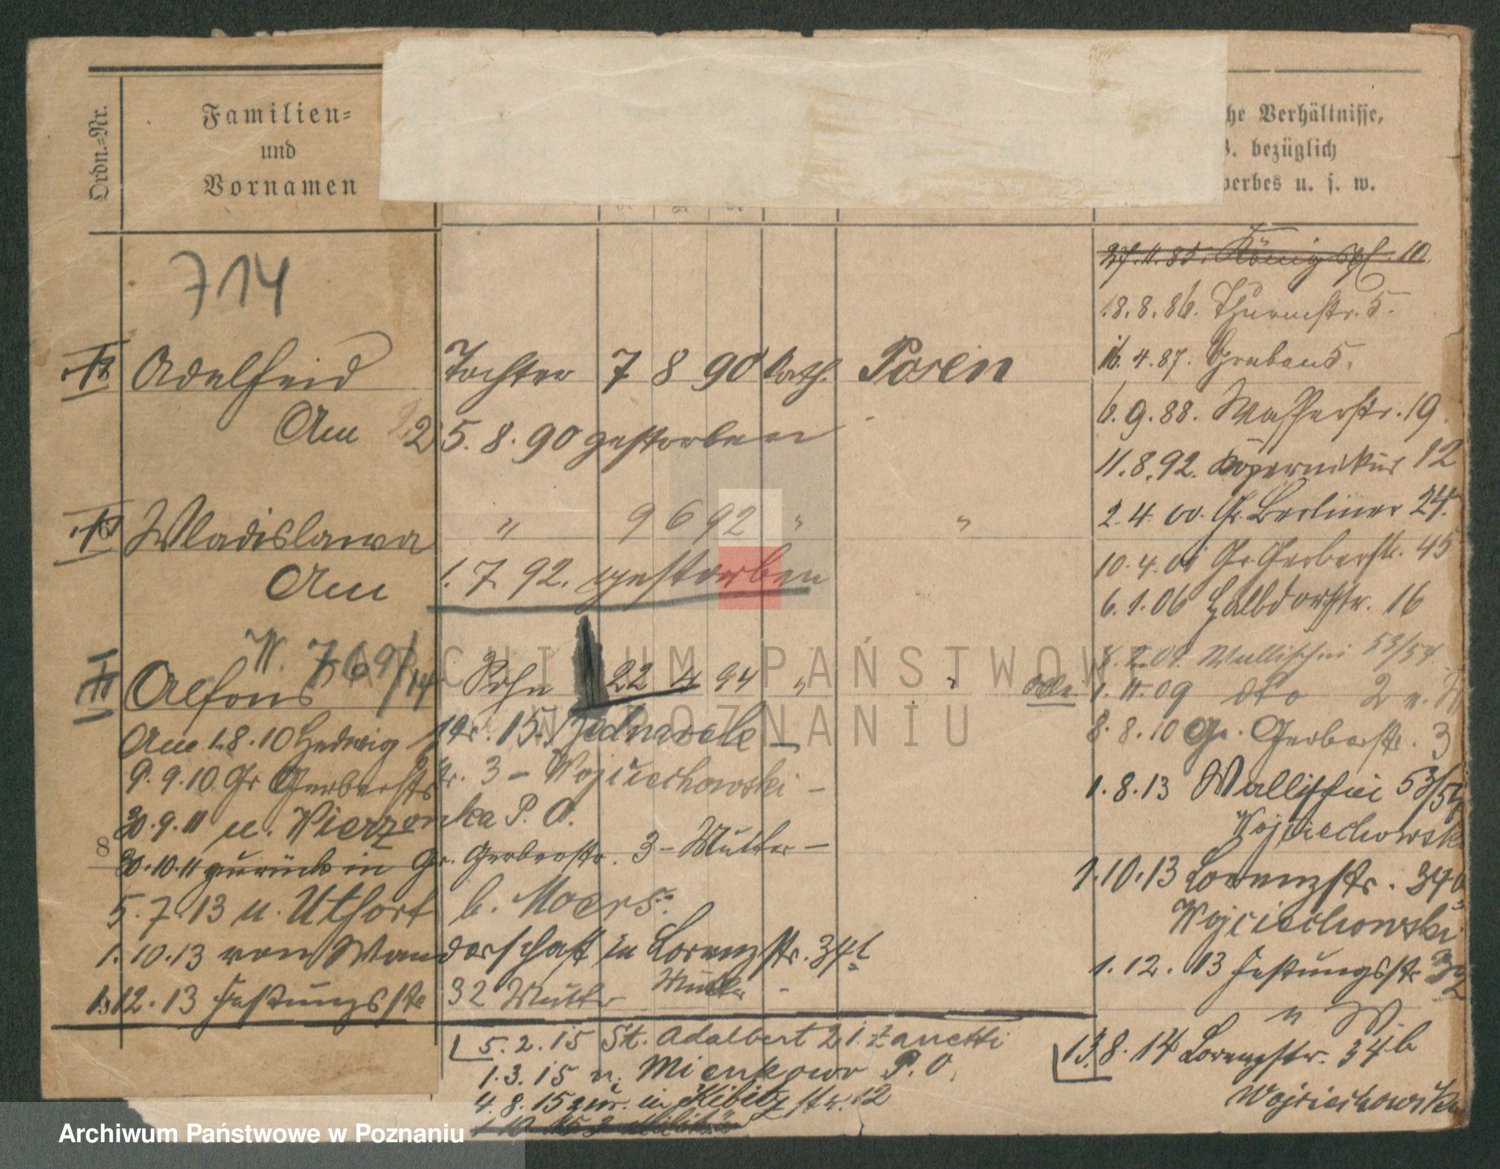 Ordn.=Nr.
Familien=
und
Vornamen
che Verhältnisse,
B. bezüglich
werbes u. s. w.
714
27.11.85. Königspl. 10
18.8.86. Thurmstr. 5.
16.4.87. Graben 5.
6.9.88. Wasserstr. 19
11.8.92. Kopernikus 12
2.4.00. Gr. Berliner 24.
10.4.01 Gr. Gerberstr. 45
6.1.06 Halbdorfstr. 16
Wallischei 53/54
1.11.09 dto 2
8.8.10 Gr. Gerberstr. 3
1.8.13 Wallischei 53/54
Wojciechowski
1.10.13 Lorenzstr. 34b
Wojciechowski
1.12.13 Festungsstr. 32
" W.
13.8.14 Lorenzstr. 34b
Wojciechowski
Adelheid Tochter 7 8 90 kath. Posen
Am 25.8.90 gestorben
Wladislawa " 9 6 92 " "
Am 1.7.92. gestorben
W. 769/14
Alfons Sohn 22 4 94 " "
Am 1.8.10 Hedwigstr. 15. Jednarek –
9.9.10 Gr Gerberstr. 3 – Wojciechowski –
30.9.11 n. Wierzonka P. O.
30.10.11 zurück in Gr. Gerberstr. 3 – Mutter –
5.7.13 n. Utfort b. Moers.
1.10.13 von Wanderschaft in Lorenzstr. 34b
Mutter –
1.12.13 Festungsstr 32 Mutter
8
5.2.15 St. Adalbert 21 Zanetti
1.3.15 n. Mienkowo P. O.
4.8.15 zur. in Kibitzstr. 12
ARCHIWUM PAŃSTWOWE
W POZNANIU
Archiwum Państwowe w Poznaniu